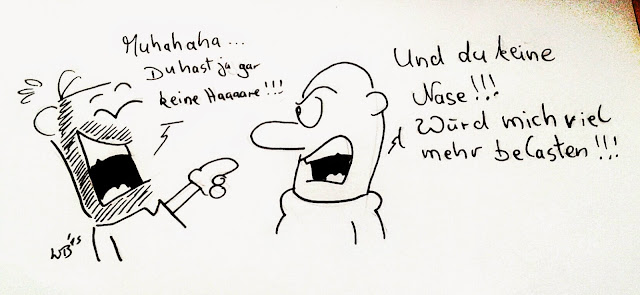 Muhahaha...
Du hast ja gar
keine Haaaare!!!
Und du keine
Nase!!!
Würd mich viel
mehr belasten!!!
WB '15